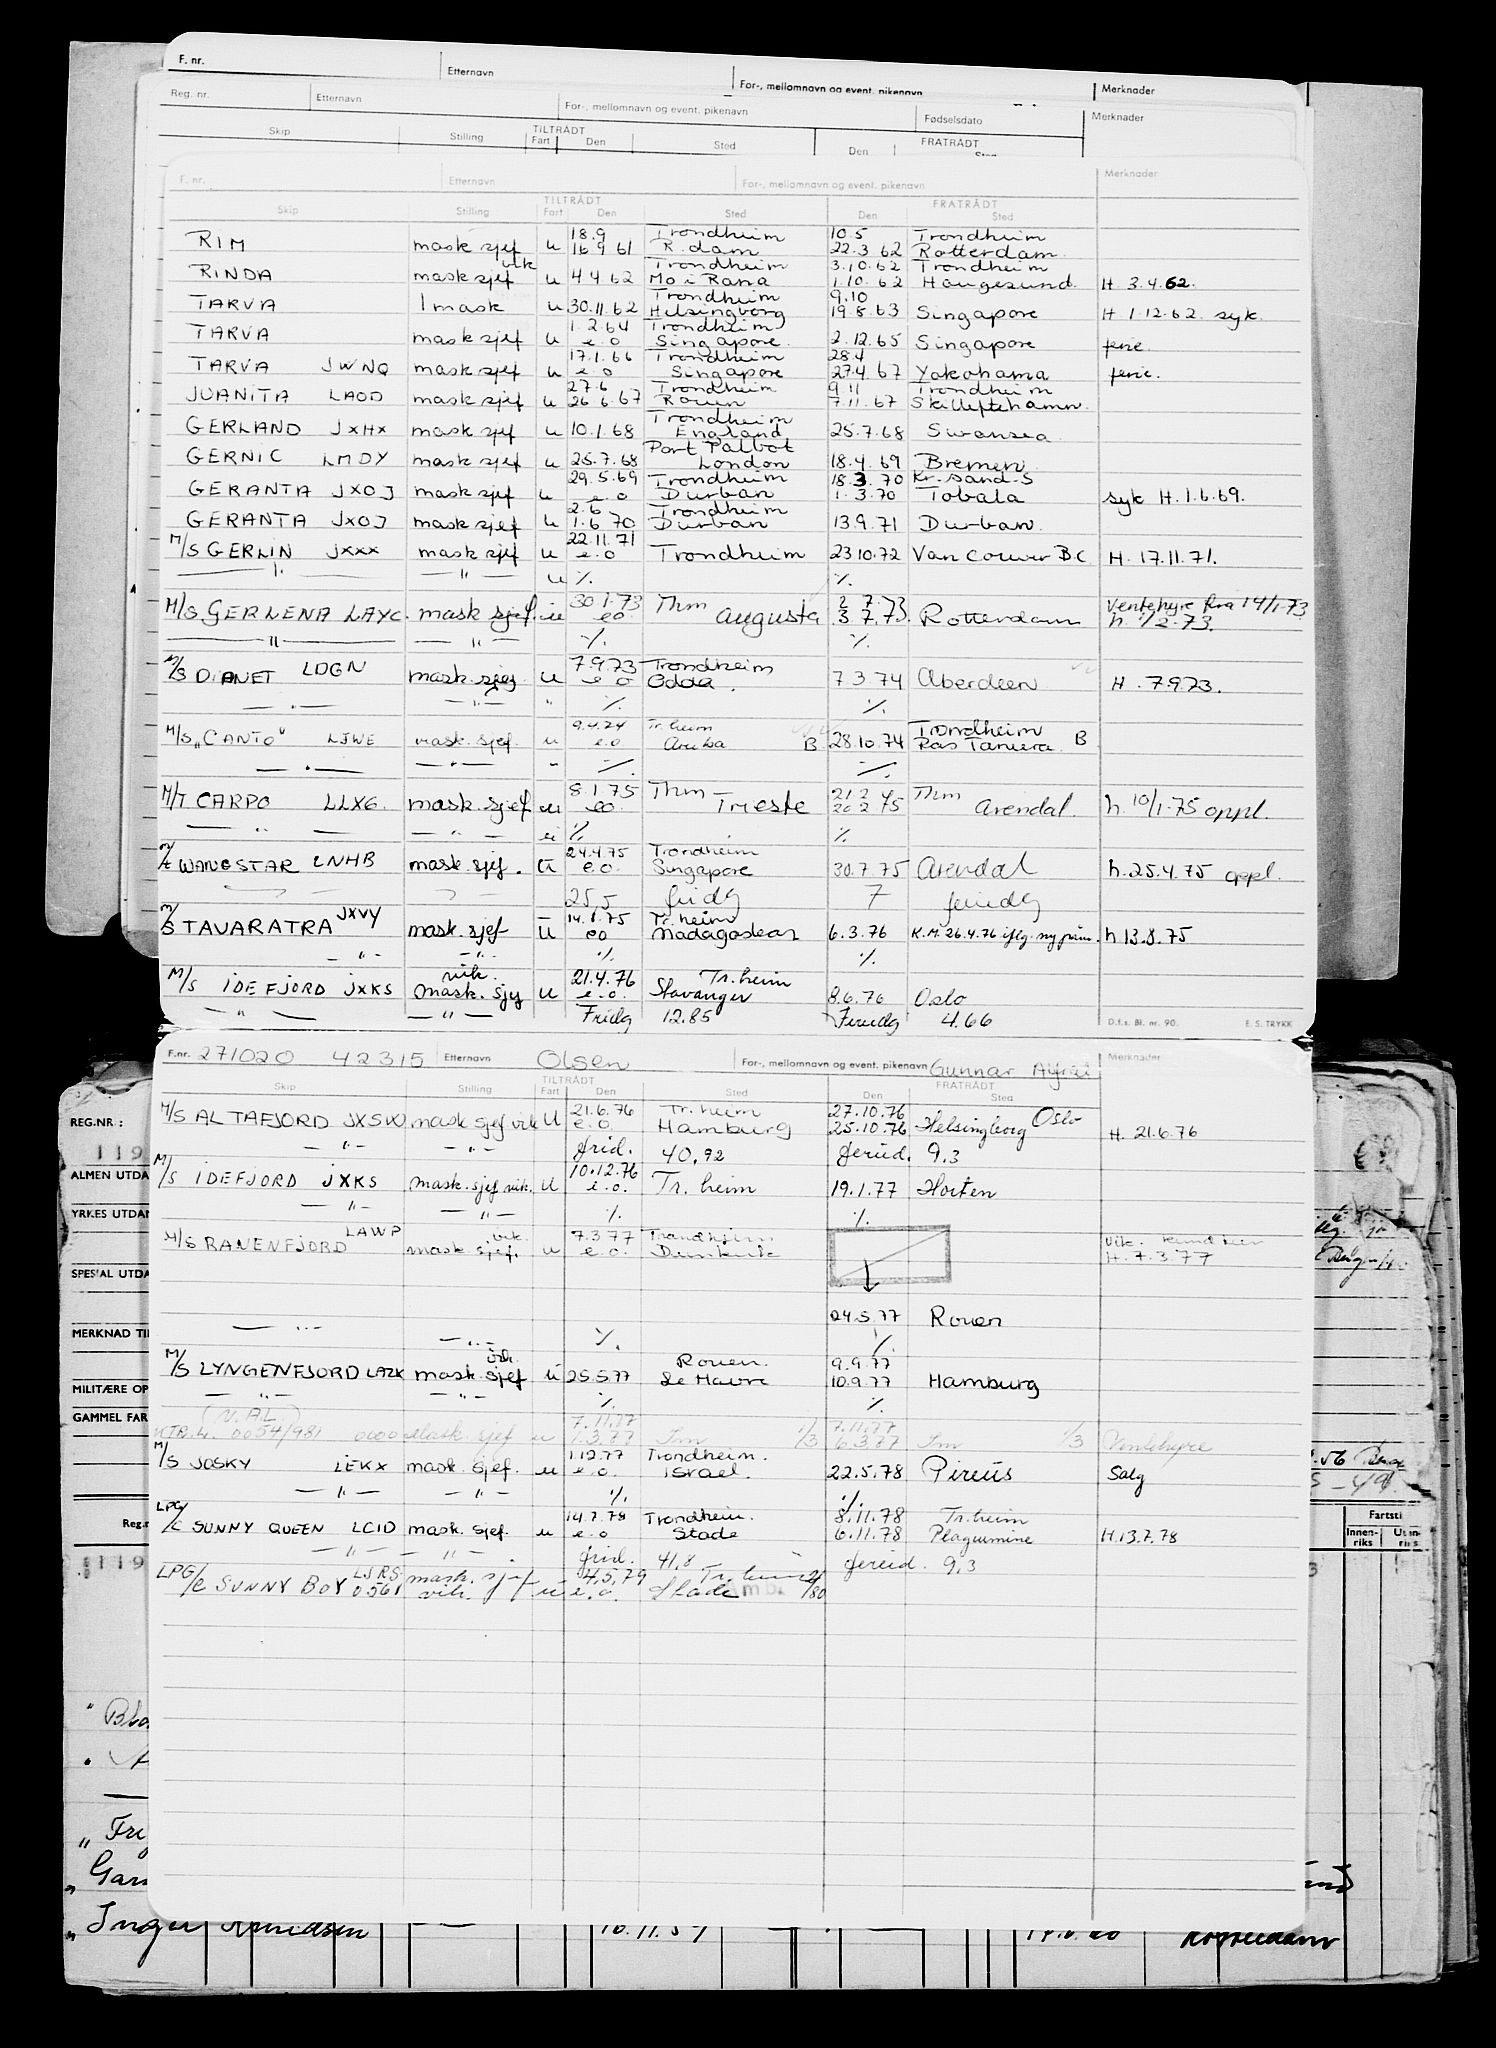 F. nr. Etternavn For-, mellomnavn og event. pikenavn Merknader
Reg. nr. Etternavn For-, mellomnavn og event. pikenavn Fødselsdato Merknader
Skip Stilling TILTRÅDT Fart Den Sted Den FRATRÅDT
F. nr. Etternavn For-, mellomnavn og event. pikenavn Merknader
TILTRÅDT FRATRÅDT
Skip Stilling Fart Den Sted Den Sted
18.9 Trondheim 10.5 Trondheim
RIM mask sjef u 16.9 61 R.dam 22.3 62 Rotterdam
vik Trondheim 3.10.62 Trondheim
RINDA mask sjef u 4.4 62 Mo i Rana 1.10.62 Haugesund. H. 3.4.62.
Trondheim 9.10
TARVA 1 mask u 30.11.62 Helsingborg 19.8.63 Singapore H. 1.12.62. syk.
1.2.64 Trondheim
TARVA mask sjef u e.o Singapore. 2.12.65 Singapore ferie.
17.1.66 Trondheim 28.4
TARVA JWNQ mask sjef u e.o Singapore 27.4.67 Yokohama ferie.
27.6 Trondheim 9.11 Trondheim
JUANITA LAOD mask sjef u 26.6.67 Rouen 7.11.67 Skelleftehamn.
Trondheim
GERLAND JXHX mask sjef u 10.1.68 England 25.7.68 Swansea
Port Talbot
GERNIC LMDY mask sjef u 25.7.68 London 18.4.69 Bremen
29.5.69 Trondheim 18.3.70 Kr.sand-S
GERANTA JXOJ mask sjef u e.o Durban 1.3.70 Tobata syk H.1.6.69.
2.6 Trondheim
GERANTA JXOJ mask sjef u 1.6 70 Durban 13.9.71 Durban.
22.11.71
M/S GERLIN JXXX mask sjef u e.o Trondheim 23.10.72 Vancouver B.C H. 17.11.71.
— " — — " — u %. %.
30.1.73 Thm 2.7.73 Ventehyre fra 14/1-73
M/S GERLENA LAYC. mask sjef. u eo. Augusta 3.7.73. Rotterdam h. 1/2-73.
— " — — " — %. %.
7.9.73 Trondheim
M/S DIANET LDGN mask sjef u e o Odda. 7.3.74 Aberdeen H. 7.9.73.
— " — — " — " %. %.
9.4.74 Tr.heim Trondheim
M/S "CANTO" LJWE mask. sjef. u e.o Aruba B 28.10.74 Ras Tanura B
— " — — " — " %. %.
8.1.75 Thm 21.2 Thm
M/T CARPO LLXG. mask. sjef u eo. Trieste 20.2.75 Arendal. h. 10/1-75 oppl.
— " — — " — u %. %.
24.4.75 Trondheim
WANGSTAR LNHB mask. sjef. u e.o. Singapore 30.7.75 Arendal h. 25.4.75 oppl.
25,5 fridg 7 feridg
14.8.75 Tr.heim
M/S TAVARATRA JXVY mask. sjef u eo Madagaskar 6.3.76 K.M. 26.4.76 iflg. ny påm. h 13.8.75
— " — — " — %. %.
vik. 21.4.76 Tr.heim
M/S IDEFJORD JXKS mask. sjef u e.o. Stavanger 8.6.76 Oslo
— " — — " — Fridg 12.85 Feridg 4.66
D.f.s. Bl. nr. 90. E. S. TRYKK
F.nr. 271020 42315 Etternavn Olsen For-, mellomnavn og event. pikenavn Gunnar Alfred Merknader
TILTRÅDT FRATRÅDT
Skip Stilling Fart Den Sted Den Sted
21.6.76 Tr.heim 27.10.76 Oslo
M/S ALTAFJORD JXSW mask sjef vik u e.o. Hamburg 25.10.76 Helsingborg H. 21.6.76
— " — — " — frid. 40,92 feried. 9,3
10.12.76
M/S IDEFJORD JXKS mask. sjef vik. u e.o. Tr.heim 19.1.77 Horten
— " — — " — %. %.
LAWP vik. 7.3.77 Trondhjem
M/S RANENFJORD mask sjef. u e.o. Dunkirk H. 7.3.77
↓
24.5.77 Rouen
— " — — " — %. %.
vik. Rouen. 9.9.77
M/S LYNGENFJORD LAZK mask sjef u 25.5.77 Le Havre 10.9.77 Hamburg
— " — — " — %. %.
(N.AL) 7.11.77 7.11.77
0054/981 0000 Mask. sjef u 1/3 1/3 Ventehyre
1.12.77 Trondheim.
M/S JOSKY LEKX mask. sjef. u e.o. Israel. 22.5.78 Pireus Salg
— " — — " — %. %.
14.7.78 Trondheim. 8.11.78 Tr.heim
LPG/C SUNNY QUEEN LCID mask. sjef. u e.o Stade 6.11.78 Plaquemine H.13.7.78
— " — — " — frid. 41,8 feried. 9,3
LPG/C SUNNY BOY LJRS 0561 mask. sjef vik. u 4.5.79 e.o. Tr.heim Stade /80
REG.NR.:
119
ALMEN UTDA
YRKES UTDAN
SPESIAL UTDA
MERKNAD TI
MILITÆRE OP
GAMMEL FAR
Reg.n
119
Fartsti
Innen-riks Uten-riks
Inger Knudsen 16.11.59 Rotterdam